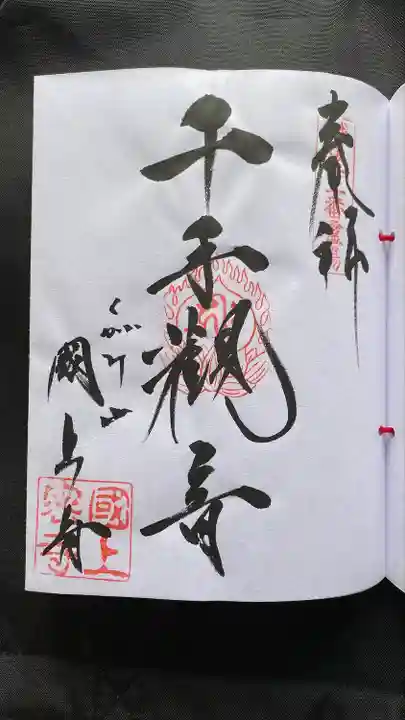 奉拝
千手観音
くがみ山
國上寺
國上
寺